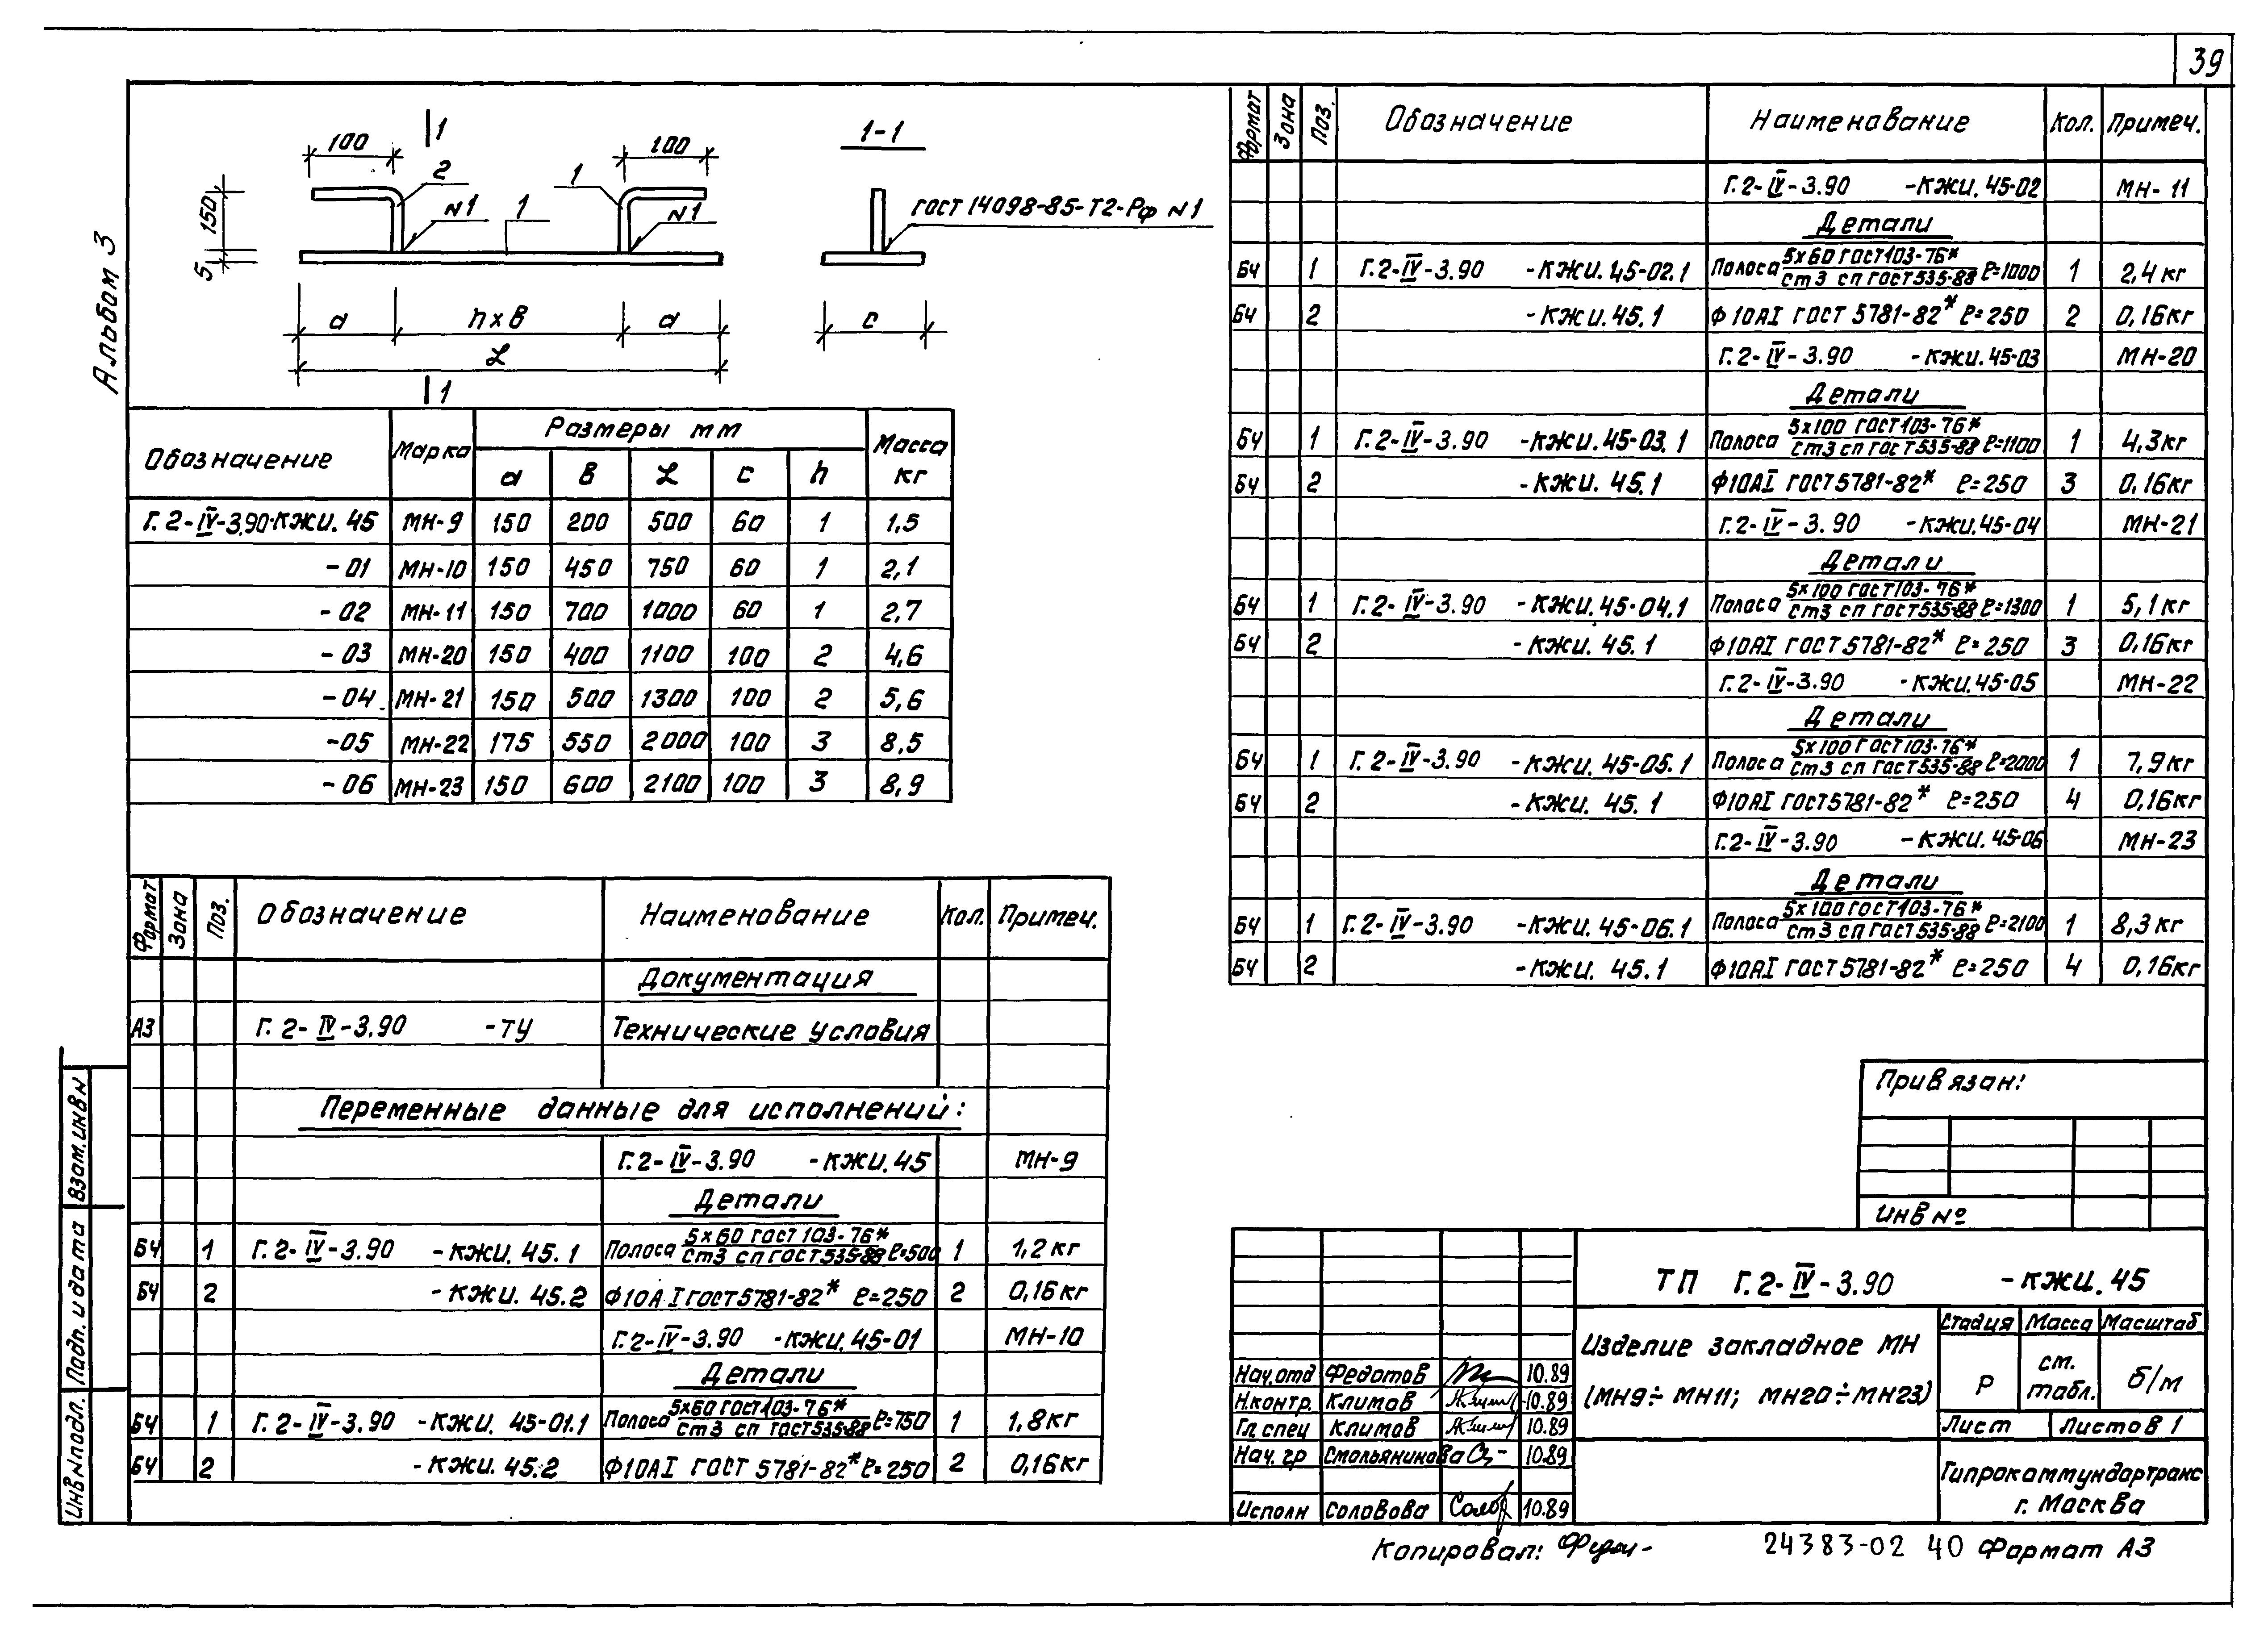 39
Альбом 3
1
1-1
100
100
2
1
№1
1
№1
150
5
ГОСТ 14098-85-Т2-Рф №1
а
n×в
а
с
L
1
Обозначение Марка Размеры мм Масса кг
а в L с n
Г.2-IV-3.90-КЖИ.45 МН-9 150 200 500 60 1 1,5
-01 МН-10 150 450 750 60 1 2,1
-02 МН-11 150 700 1000 60 1 2,7
-03 МН-20 150 400 1100 100 2 4,6
-04 МН-21 150 500 1300 100 2 5,6
-05 МН-22 175 550 2000 100 3 8,5
-06 МН-23 150 600 2100 100 3 8,9
Формат Зона Поз. Обозначение Наименование Кол. Примеч.
Документация
А3 Г.2-IV-3.90 -ТУ Технические условия
Переменные данные для исполнений:
Г.2-IV-3.90 -КЖИ.45 МН-9
Детали
БЧ 1 Г.2-IV-3.90 -КЖИ.45.1 Полоса 5×60 ГОСТ 103-76* / Ст3 сп ГОСТ 535-88 ℓ=500 1 1,2кг
БЧ 2 -КЖИ.45.2 Ф10АI ГОСТ 5781-82* ℓ=250 2 0,16кг
Г.2-IV-3.90 -КЖИ.45-01 МН-10
Детали
БЧ 1 Г.2-IV-3.90 -КЖИ.45-01.1 Полоса 5×60 ГОСТ 103-76* / Ст3 сп ГОСТ 535-88 ℓ=750 1 1,8кг
БЧ 2 -КЖИ.45.2 Ф10АI ГОСТ 5781-82* ℓ=250 2 0,16кг
Формат Зона Поз. Обозначение Наименавание Кол. Примеч.
Г.2-IV-3.90 -КЖИ.45-02 МН-11
Детали
БЧ 1 Г.2-IV-3.90 -КЖИ.45-02.1 Полоса 5×60 ГОСТ 103-76* / Ст3 сп ГОСТ 535-88 ℓ=1000 1 2,4кг
БЧ 2 -КЖИ.45.1 Ф10АI ГОСТ 5781-82* ℓ=250 2 0,16кг
Г.2-IV-3.90 -КЖИ.45-03 МН-20
Детали
БЧ 1 Г.2-IV-3.90 -КЖИ.45-03.1 Полоса 5×100 ГОСТ 103-76* / Ст3 сп ГОСТ 535-88 ℓ=1100 1 4,3кг
БЧ 2 -КЖИ.45.1 Ф10АI ГОСТ 5781-82* ℓ=250 3 0,16кг
Г.2-IV-3.90 -КЖИ.45-04 МН-21
Детали
БЧ 1 Г.2-IV-3.90 -КЖИ.45-04.1 Полоса 5×100 ГОСТ 103-76* / Ст3 сп ГОСТ 535-88 ℓ=1300 1 5,1кг
БЧ 2 -КЖИ.45.1 Ф10АI ГОСТ 5781-82* ℓ=250 3 0,16кг
Г.2-IV-3.90 -КЖИ.45-05 МН-22
Детали
БЧ 1 Г.2-IV-3.90 -КЖИ.45-05.1 Полоса 5×100 ГОСТ 103-76* / Ст3 сп ГОСТ 535-88 ℓ=2000 1 7,9кг
БЧ 2 -КЖИ.45.1 Ф10АI ГОСТ 5781-82* ℓ=250 4 0,16кг
Г.2-IV-3.90 -КЖИ.45-06 МН-23
Детали
БЧ 1 Г.2-IV-3.90 -КЖИ.45-06.1 Полоса 5×100 ГОСТ 103-76* / Ст3 сп ГОСТ 535-88 ℓ=2100 1 8,3кг
БЧ 2 -КЖИ.45.1 Ф10АI ГОСТ 5781-82* ℓ=250 4 0,16кг
Привязан:
Инв №
ТП Г.2-IV-3.90 -КЖИ.45
Изделие закладное МН
(МН9÷МН11; МН20÷МН23)
Стадия Масса Масштаб
Р см. табл. б/м
Лист Листов 1
Гипрокоммундортранс
г. Москва
Нач.отд Федотов 10.89
Н.контр. Климов 10.89
Гл.спец Климов 10.89
Нач.гр Смольянинова 10.89
Исполн Соловова 10.89
Взам.инв№
Подп. и дата
Инв№подл.
Копировал:
24383-02 40 Формат А3